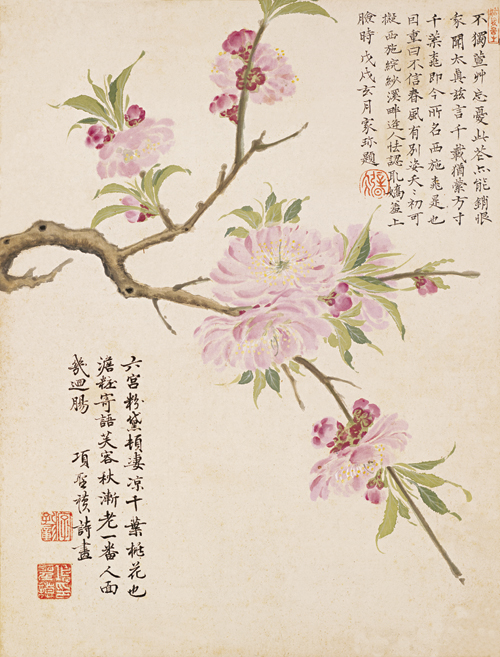 不獨萱艸忘憂此花亦能銷恨
聞太真茲言千載猶方寸
千葉桃即今所名西施桃是也
因重曰不信春風有別姿夭〻初可
擬西施浣紗溪畔逢人怯認取嬌羞上
臉時戊戌玄月家珍題
六宮粉黛頓凄涼千葉桃花也
澹粧寄語芙容秋漸老一番人面
幾迴腸
項聖謨詩畫